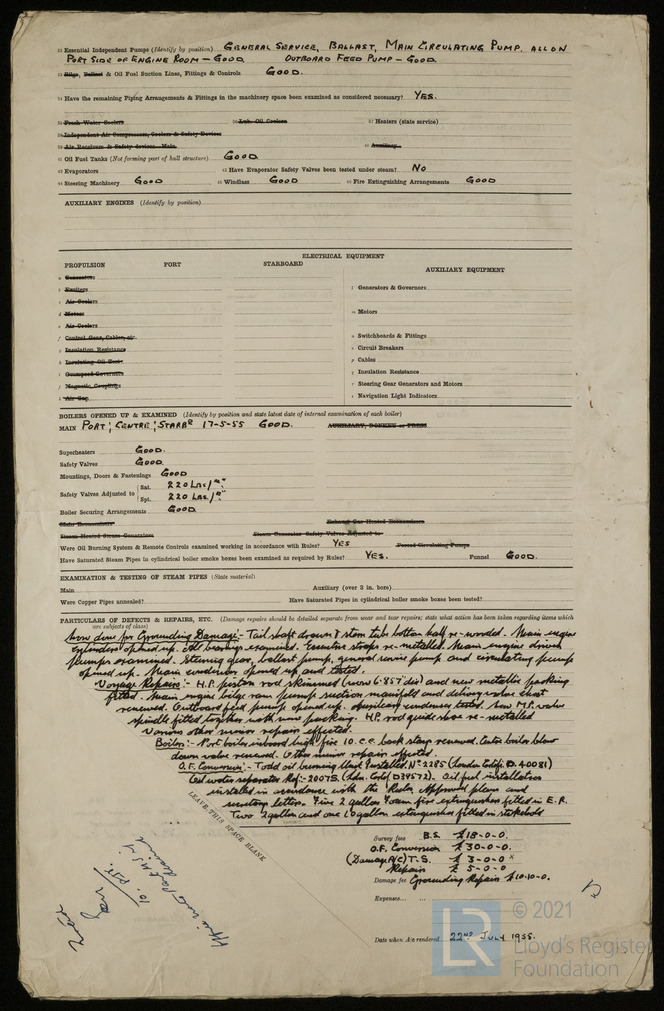 Essential Independent Pumps (Identify by position) GENERAL SERVICE, BALLAST, MAIN CIRCULATING PUMP. ALL ON
PORT SIDE OF ENGINE ROOM – GOOD. OUTBOARD FEED PUMP – GOOD.
Bilge, Ballast & Oil Fuel Suction Lines, Fittings & Controls GOOD.
Have the remaining Piping Arrangements & Fittings in the machinery space been examined as considered necessary? YES.
Fresh Water Coolers Lub. Oil Coolers Heaters (state service)
Independent Air Compressors, Coolers & Safety Devices
Air Receivers & Safety devices – Main Auxiliary
Oil Fuel Tanks (Not forming part of hull structure) GOOD
Evaporators Have Evaporator Safety Valves been tested under steam? NO
Steering Machinery GOOD Windlass GOOD Fire Extinguishing Arrangements GOOD
AUXILIARY ENGINES (Identify by position)
ELECTRICAL EQUIPMENT
PROPULSION PORT STARBOARD AUXILIARY EQUIPMENT
Generators
Exciters Generators & Governors
Air Coolers
Motors Motors
Air Coolers
Control Gear, Cables, etc. Switchboards & Fittings
Insulation Resistance Circuit Breakers
Insulating Oil Test Cables
Overspeed Governors Insulation Resistance
Magnetic Couplings Steering Gear Generators and Motors
Air Gap Navigation Light Indicators
BOILERS OPENED UP & EXAMINED (Identify by position and state latest date of internal examination of each boiler)
MAIN PORT; CENTRE; STARBD 17-5-55 GOOD. AUXILIARY, DONKEY or PRESS
Superheaters GOOD.
Safety Valves GOOD
Mountings, Doors & Fastenings GOOD
Safety Valves Adjusted to Sat. 220 LBS/□"
Spt. 220 LBS/□"
Boiler Securing Arrangements GOOD
Main Economisers Exhaust Gas Heated Economisers
Steam Heated Steam Generators Steam Generator Safety Valves Adjusted to
Were Oil Burning System & Remote Controls examined working in accordance with Rules? YES Forced Circulating Pumps
Have Saturated Steam Pipes in cylindrical boiler smoke boxes been examined as required by Rules? YES. Funnel GOOD.
EXAMINATION & TESTING OF STEAM PIPES (State material)
Main Auxiliary (over 3 in. bore)
Were Copper Pipes annealed? Have Saturated Pipes in cylindrical boiler smoke boxes been tested?
PARTICULARS OF DEFECTS & REPAIRS, ETC. (Damage repairs should be detailed separate from wear and tear repairs; state what action has been taken regarding items which
are subjects of class)
Now done for Grounding Damage:- Tail shaft drawn & stern tube bottom half re-wooded. Main engine
cylinders opened up. All bearings examined. Eccentric straps re-metalled. Main engine driven
pumps examined. Steering gear, ballast pump, general service pump and circulating pump
opened up. Main condenser opened up and tested.
Voyage Repairs:- H.P. piston rod skimmed (now 6.857 dia) and new metallic packing
fitted. Main engine bilge ram pump suction manifold and delivery valve chest
renewed. Outboard feed pump opened up. Auxiliary condenser tested. New M.P. valve
spindle fitted together with new packing. H.P. rod guide shoe re-metalled
Various other minor repairs effected.
Boiler:- Port boiler inboard high fire 10 C.C. back stays renewed. Centre boiler blow
down valve renewed. Other minor repairs effected.
O.F. Conversion:- Todd oil burning Unit installed. No 2285 (London Certif: D.40081)
Oil water separator Ref:- 2007S. (Ldn. Certif D39572). Oil fuel installation
installed in accordance with the Rules, Approved plans and
secretary letters. Five 2 gallon Foam fire extinguishers fitted in E.R.
Two 2 gallon and one 10 gallon extinguishers fitted in stokehold
LEAVE THIS SPACE BLANK
Survey fees B.S. £18-0-0.
O.F. Conversion £30-0-0.
(Damage A/C) T.S. £3-0-0 x
Repairs £5-0-0
Damage fee Grounding Repairs £10.10-0.
Expenses
Date when A/c rendered 22ND JULY 1955.
© 2021
Lloyd's Register
Foundation